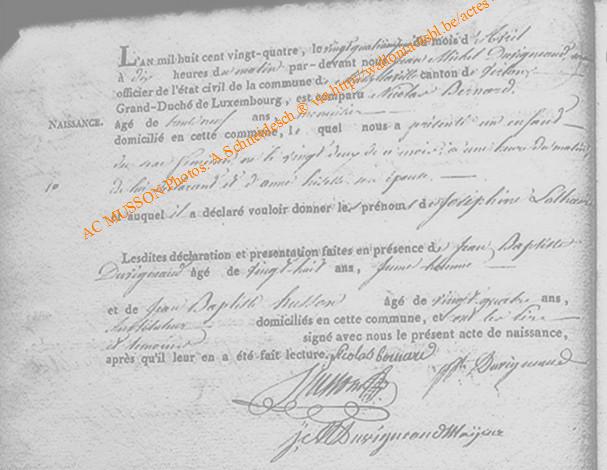 L'AN mil huit cent vingt-quatre, le vingt quatrième du mois d'Avril
à dix heures du matin par-devant nous Jean Michel Duvigneaud
officier de l'état civil de la commune de canton de
Grand-Duché de Luxembourg, est comparu Nicolas Bernard
NAISSANCE.
âgé de trente neuf ans
domicilié en cette commune, lequel nous a présenté un enfant
du sexe féminin né le vingt deux de ce mois à une heure du matin
10
de lui déclarant et d'anne son épouse
et auquel il a déclaré vouloir donner les prénoms de Joséphine
Lesdites déclaration et presentation faites en présence de Jean Baptiste
Duvigneaud âgé de vingt-huit ans, jeune homme
et de Jean Baptiste husson âgé de vingt-quatre ans,
instituteur domiciliés en cette commune, et ont les père
et témoins signé avec nous le présent acte de naissance,
après qu'il leur en a été fait lecture. Nicolas bernard
Husson Duvigneaud
Duvigneaud Maïeur
AC MUSSON Photos: A.Schneidesch @ via http://wallonica.desbl.be/actes